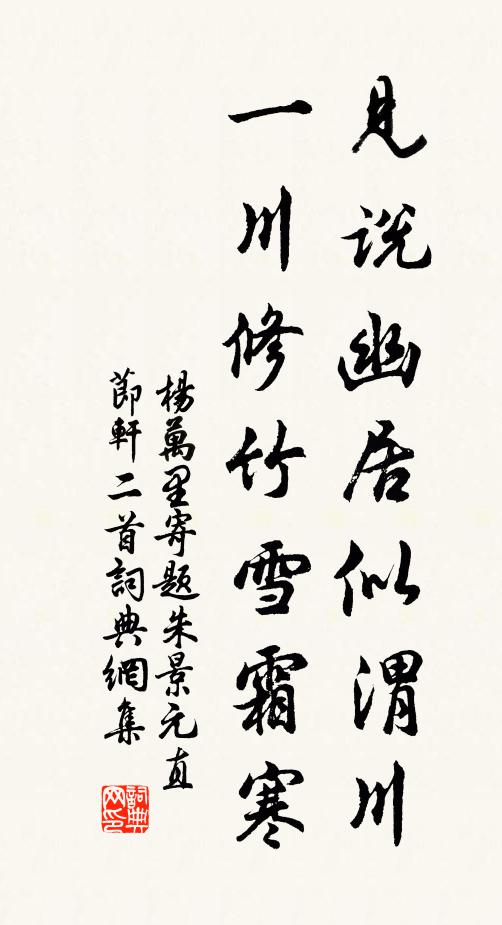 見説幽居似渭川
一川修竹雪霜寒
楊萬里寄題朱景元直
節軒二首詞典網集
詞典
网印